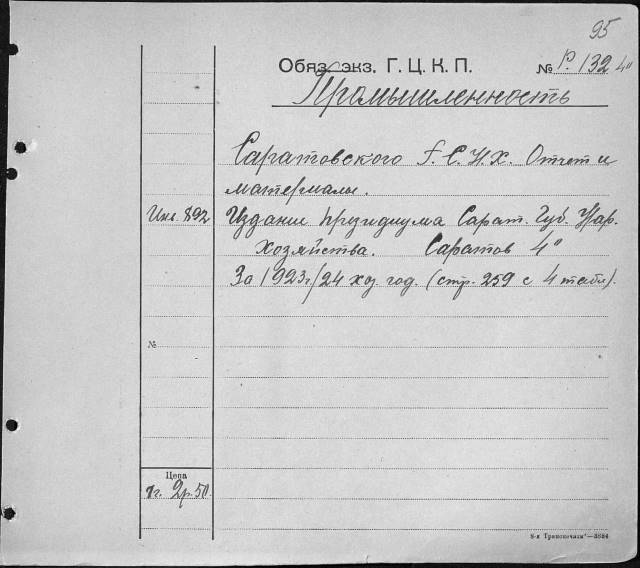 95
Обяз. экз. Г. Ц. К. П. № Р. 132 4"
Промышленность
Саратовского Г. С. Н. Х. Отчет и
материалы.
Инв. 892 Издание президиума Сарат. Губ. Нар.
хозяйства. Саратов 4"
За 1923г/24 хоз. год. (стр. 259 с 4 табл).
№
Цена
2р. 50
8-я Транспечати"—3884